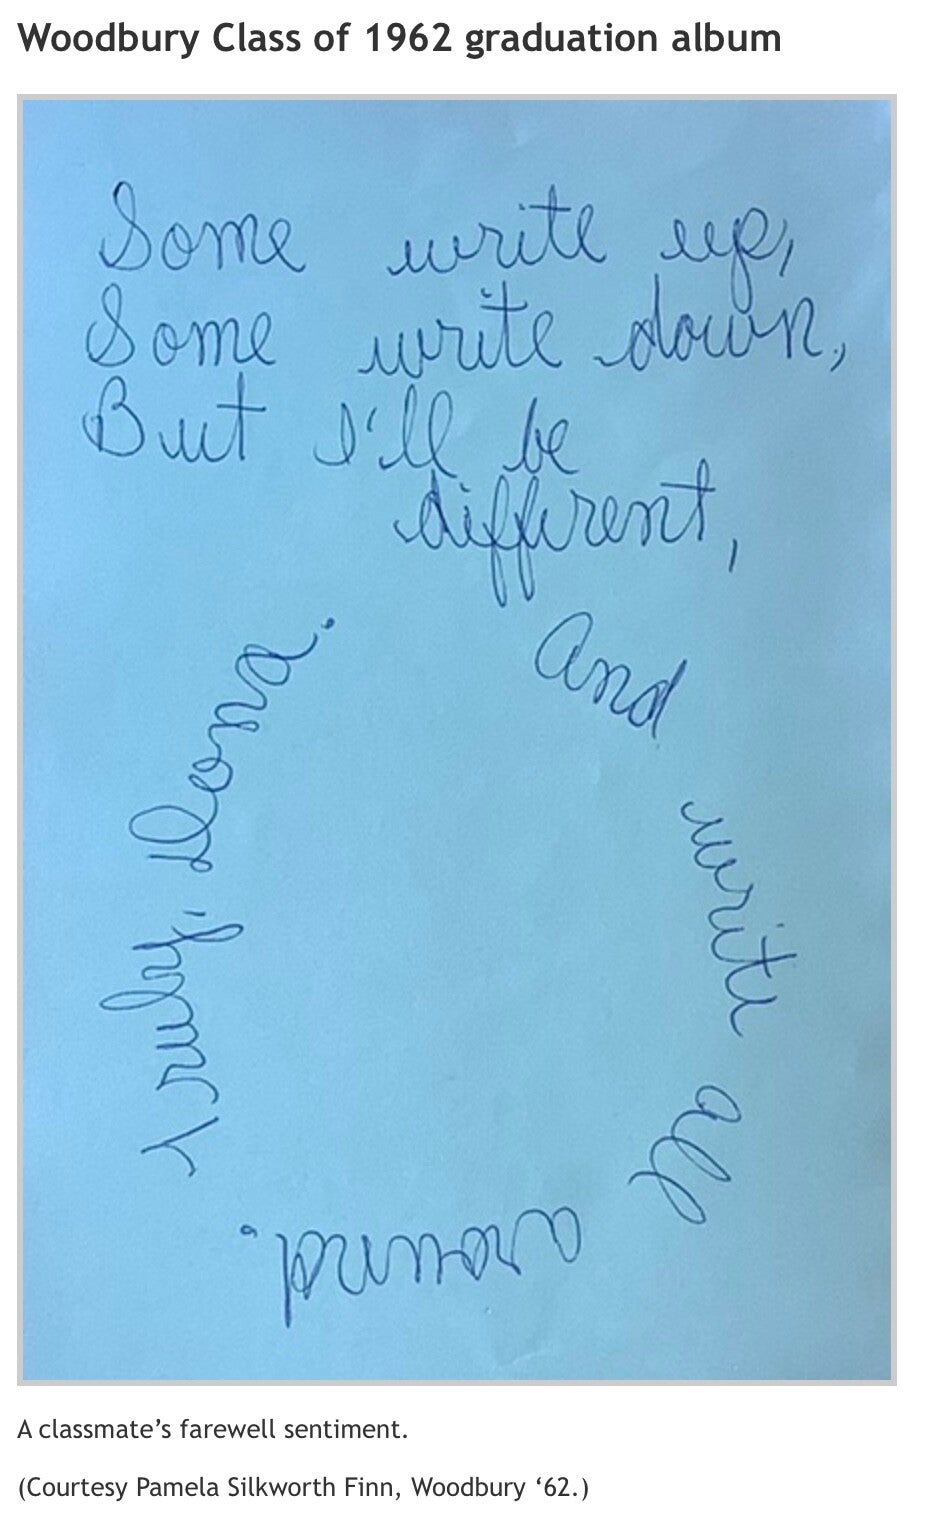 Woodbury Class of 1962 graduation album
Some write up,
Some write down,
But I'll be
different,
And
write
all
around.
Yours
truly, Dona.
A classmate’s farewell sentiment.
(Courtesy Pamela Silkworth Finn, Woodbury ‘62.)